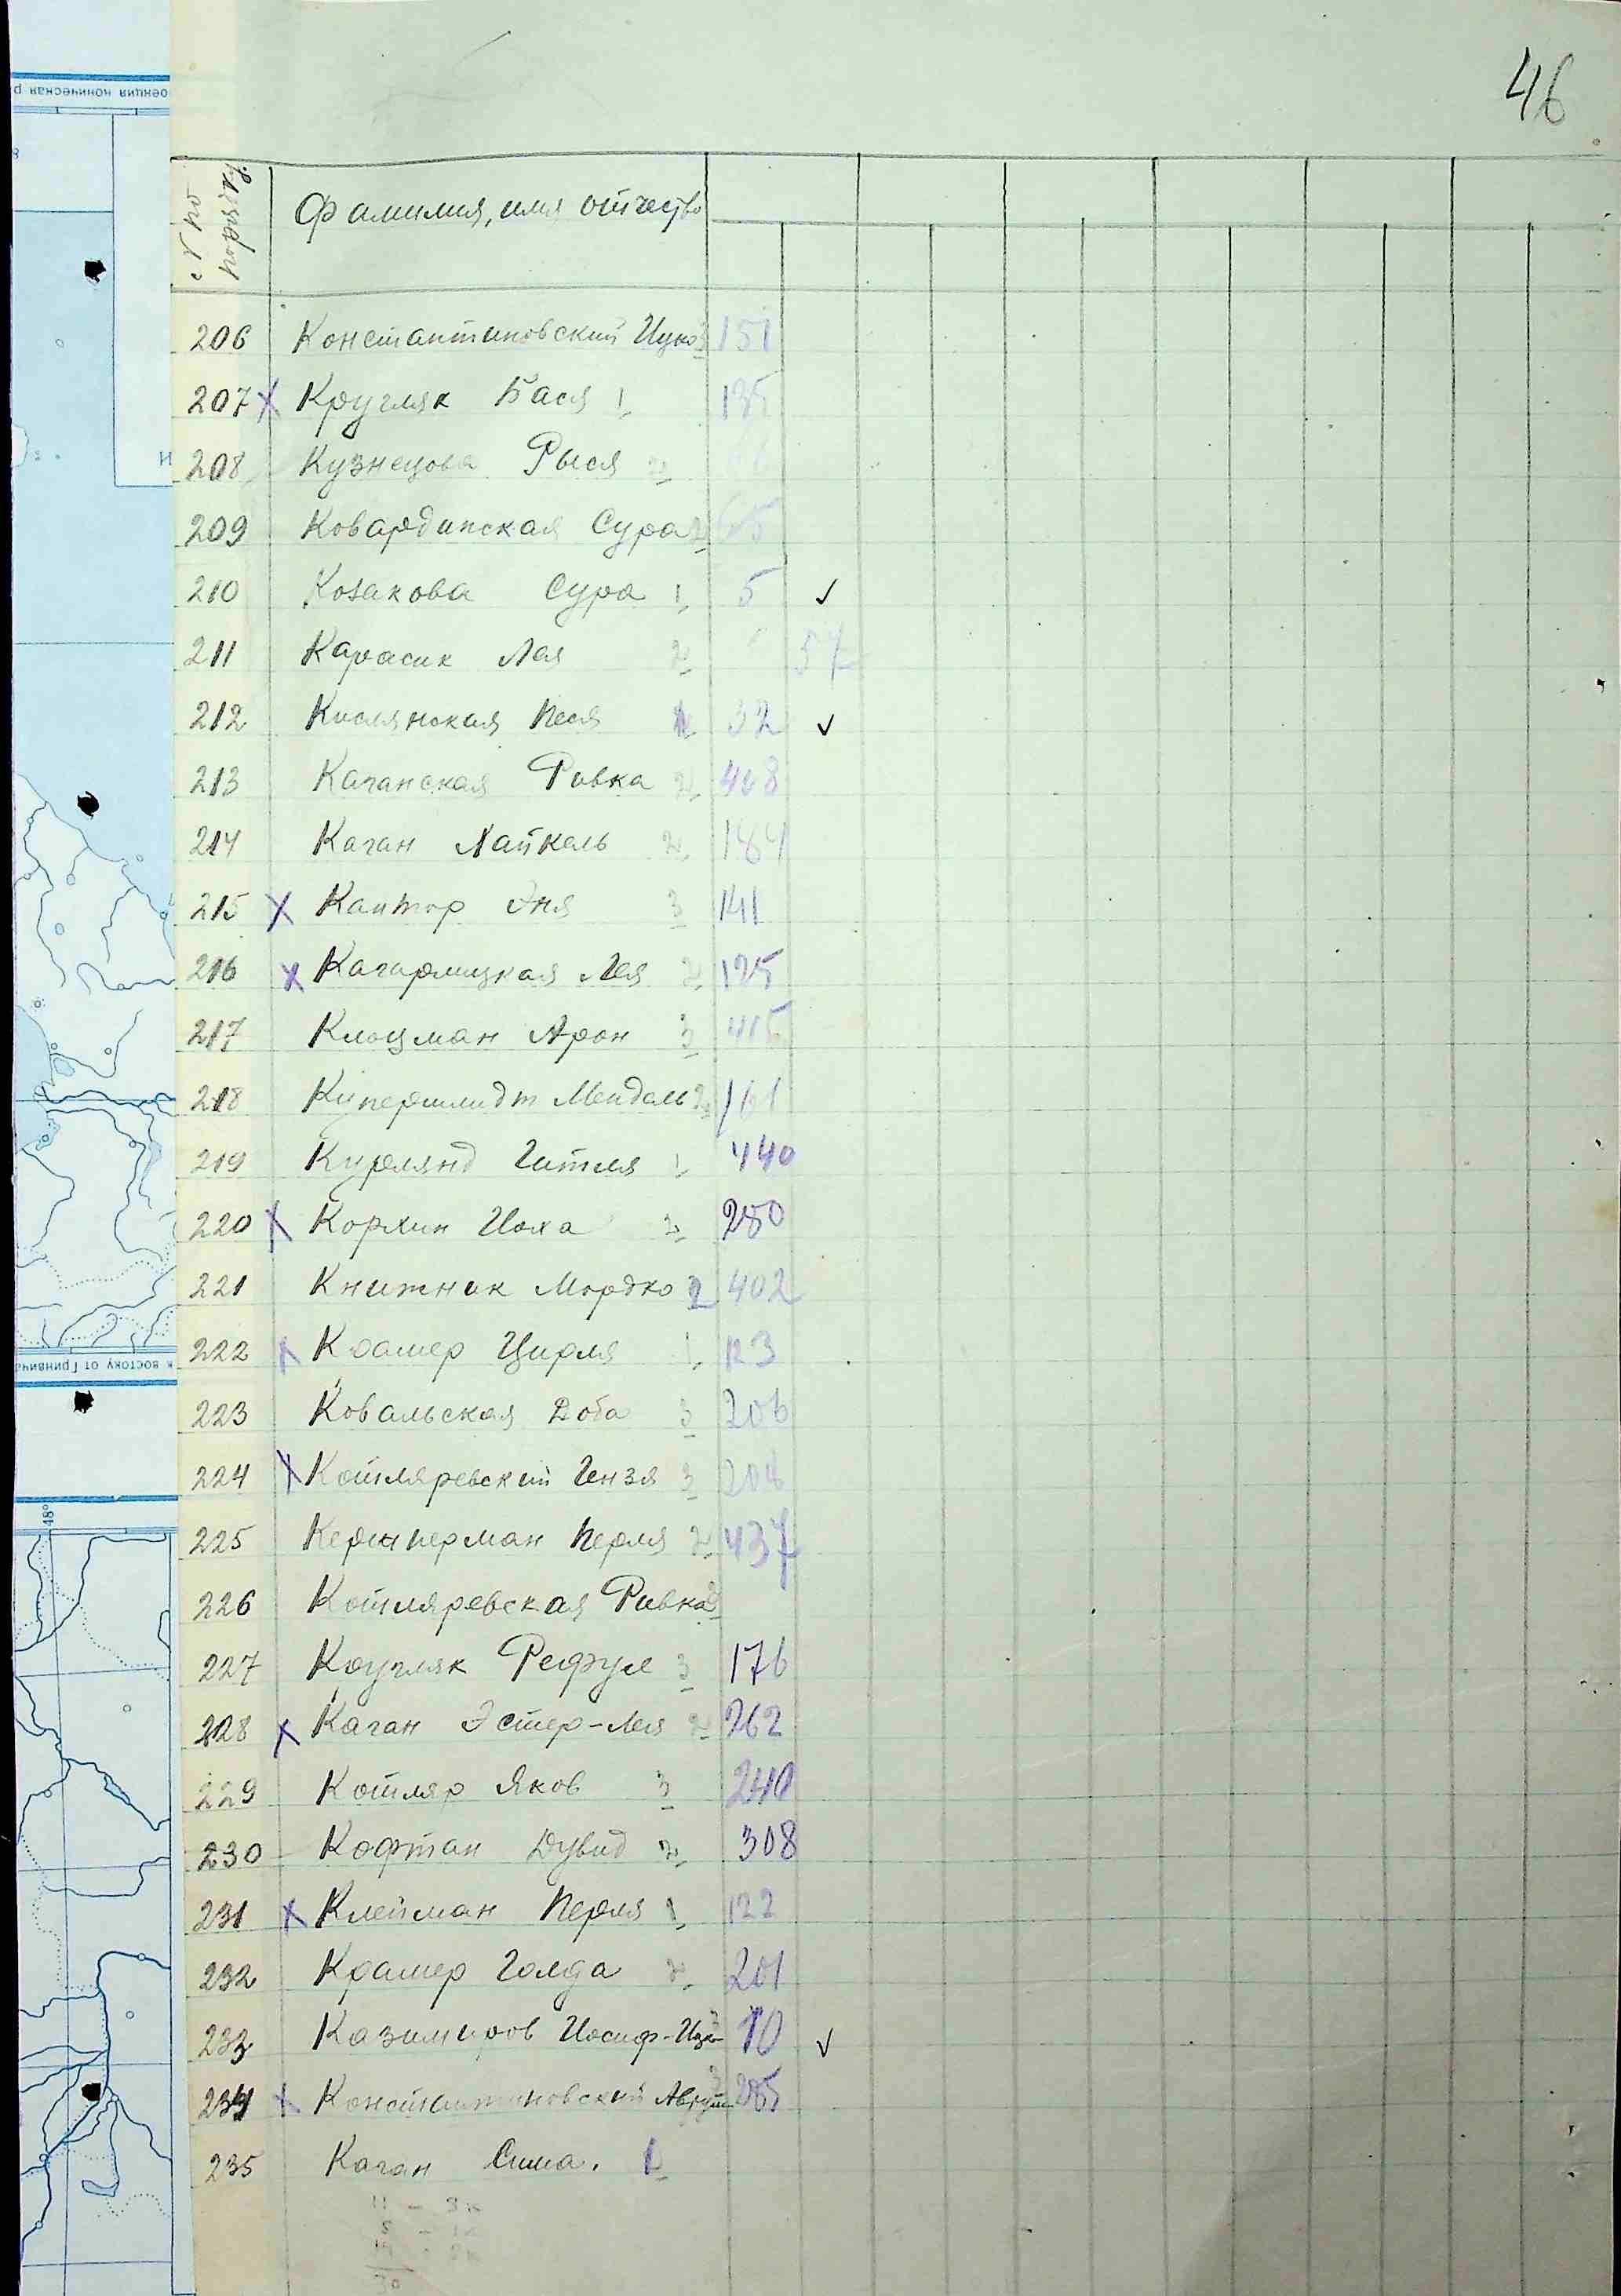 46
№ по порядку
Фамилия, имя отчество
206 Константиновский Ицко 3 151
207 X Кругляк Бася 1
208 Кузнецова Рыся 2
209 Ковардинская Сура 2
210 Козакова Сура 1 5 ✓
211 Карасик Лея 2 57
212 Кислянская Песя 32 ✓
213 Каганская Ривка 2 468
214 Каган Хайкель 2 184
215 X Кантор Эня 3 141
216 X Кагарлицкая Лея 2 125
217 Клоцман Арон 3 415
218 Купершмидт Мендель 2 161
219 Курлянд Гитля 1 440
220 X Корхин Иоха 2 280
221 Книжник Мордко 2 402
222 X Крамер Цирля 1 123
223 Ковальская Доба 3 206
224 X Котляревский Гензя 3 208
225 Перля 2 437
226 Котляревская Ривка 2
227 Кругляк Рефул 3 176
228 X Каган Эстер-Лея 2 262
229 Котляр Яков 3 240
230 Кофман Дувид 2 308
231 X Клейман Перля 1 122
232 Крамер Голда 2 201
233 Казимиров Иосиф-Ицко 3 10 ✓
234 X Константиновский Аврум 3 285
235 Каган Сима. 2
11 - 3к
8 - 1к
30
проекция коническая р
к востоку от Гринвича
48°